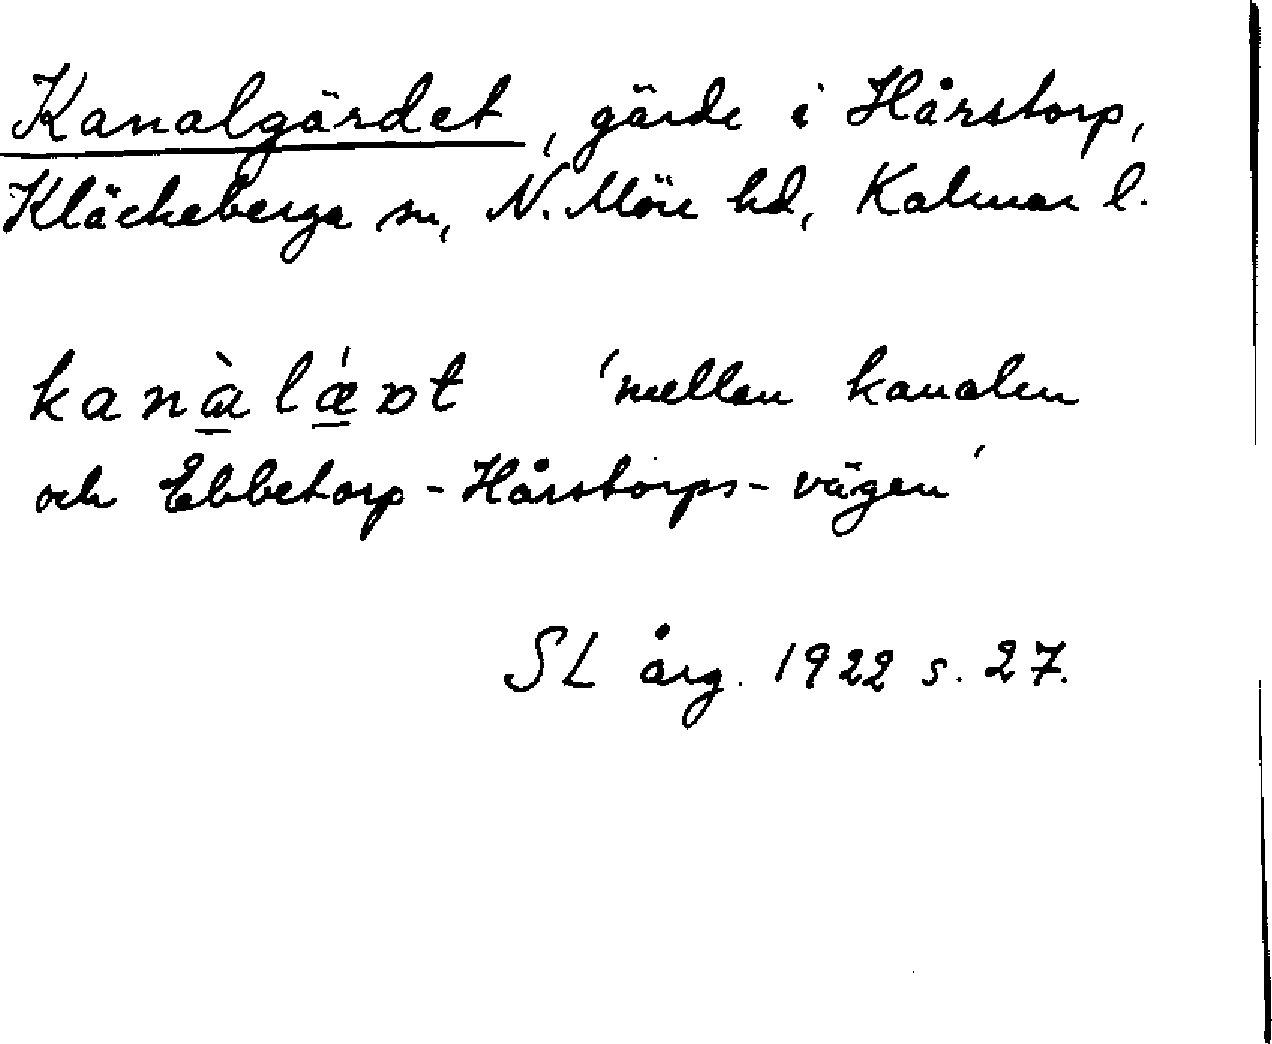 Kanalgärdet, gärde i Hårstorp,
Kläckeberga sn, N. Möre hd, Kalmar l.
'mellan kanalen
och Ebbetorp-Hårstorps-vägen'
SL årg. 1922 s. 27.